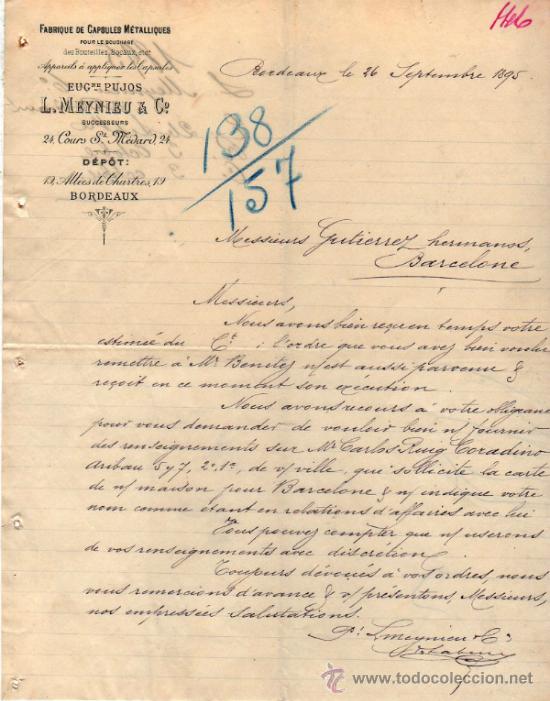 FABRIQUE DE CAPSULES MÉTALLIQUES
POUR LE BOUCHAGE
des Bouteilles, Bocaux, etc.
Appareils à appliquer les Capsules
EUGNE PUJOS
L. MEYNIEU & Co
SUCCESSEURS
24, Cours St Médard, 24
DÉPÔT:
19, Allées de Chartres, 19
BORDEAUX
Bordeaux le 26 Septembre 1895
138
157
Messieurs Gutierrez hermanos,
Barcelone
Messieurs,
Nous avons bien reçu en temps votre
estimée du Ct ; l'ordre que vous avez bien voulu
remettre à Mr Benitez n/est aussi parvenu &
reçoit en ce moment son exécution.
Nous avons recours à votre obligeance
pour vous demander de vouloir bien n/ fournir
des renseignements sur Mr Carlos Ruig Coradino
Aribau 5 y 7, 2º 1ª, de v/ ville, qui sollicite la carte
de n/ maison pour Barcelone & n/ indique votre
nom comme étant en relations d'affaires avec lui
Vous pouvez compter que n/ userons
de vos renseignements avec discrétion.
Toujours dévoués à vos ordres, nous
vous remercions d'avance & v/ présentons, Messieurs,
nos empressées salutations.
Pr L Meynieu & Co
todocoleccion
www.todocoleccion.net